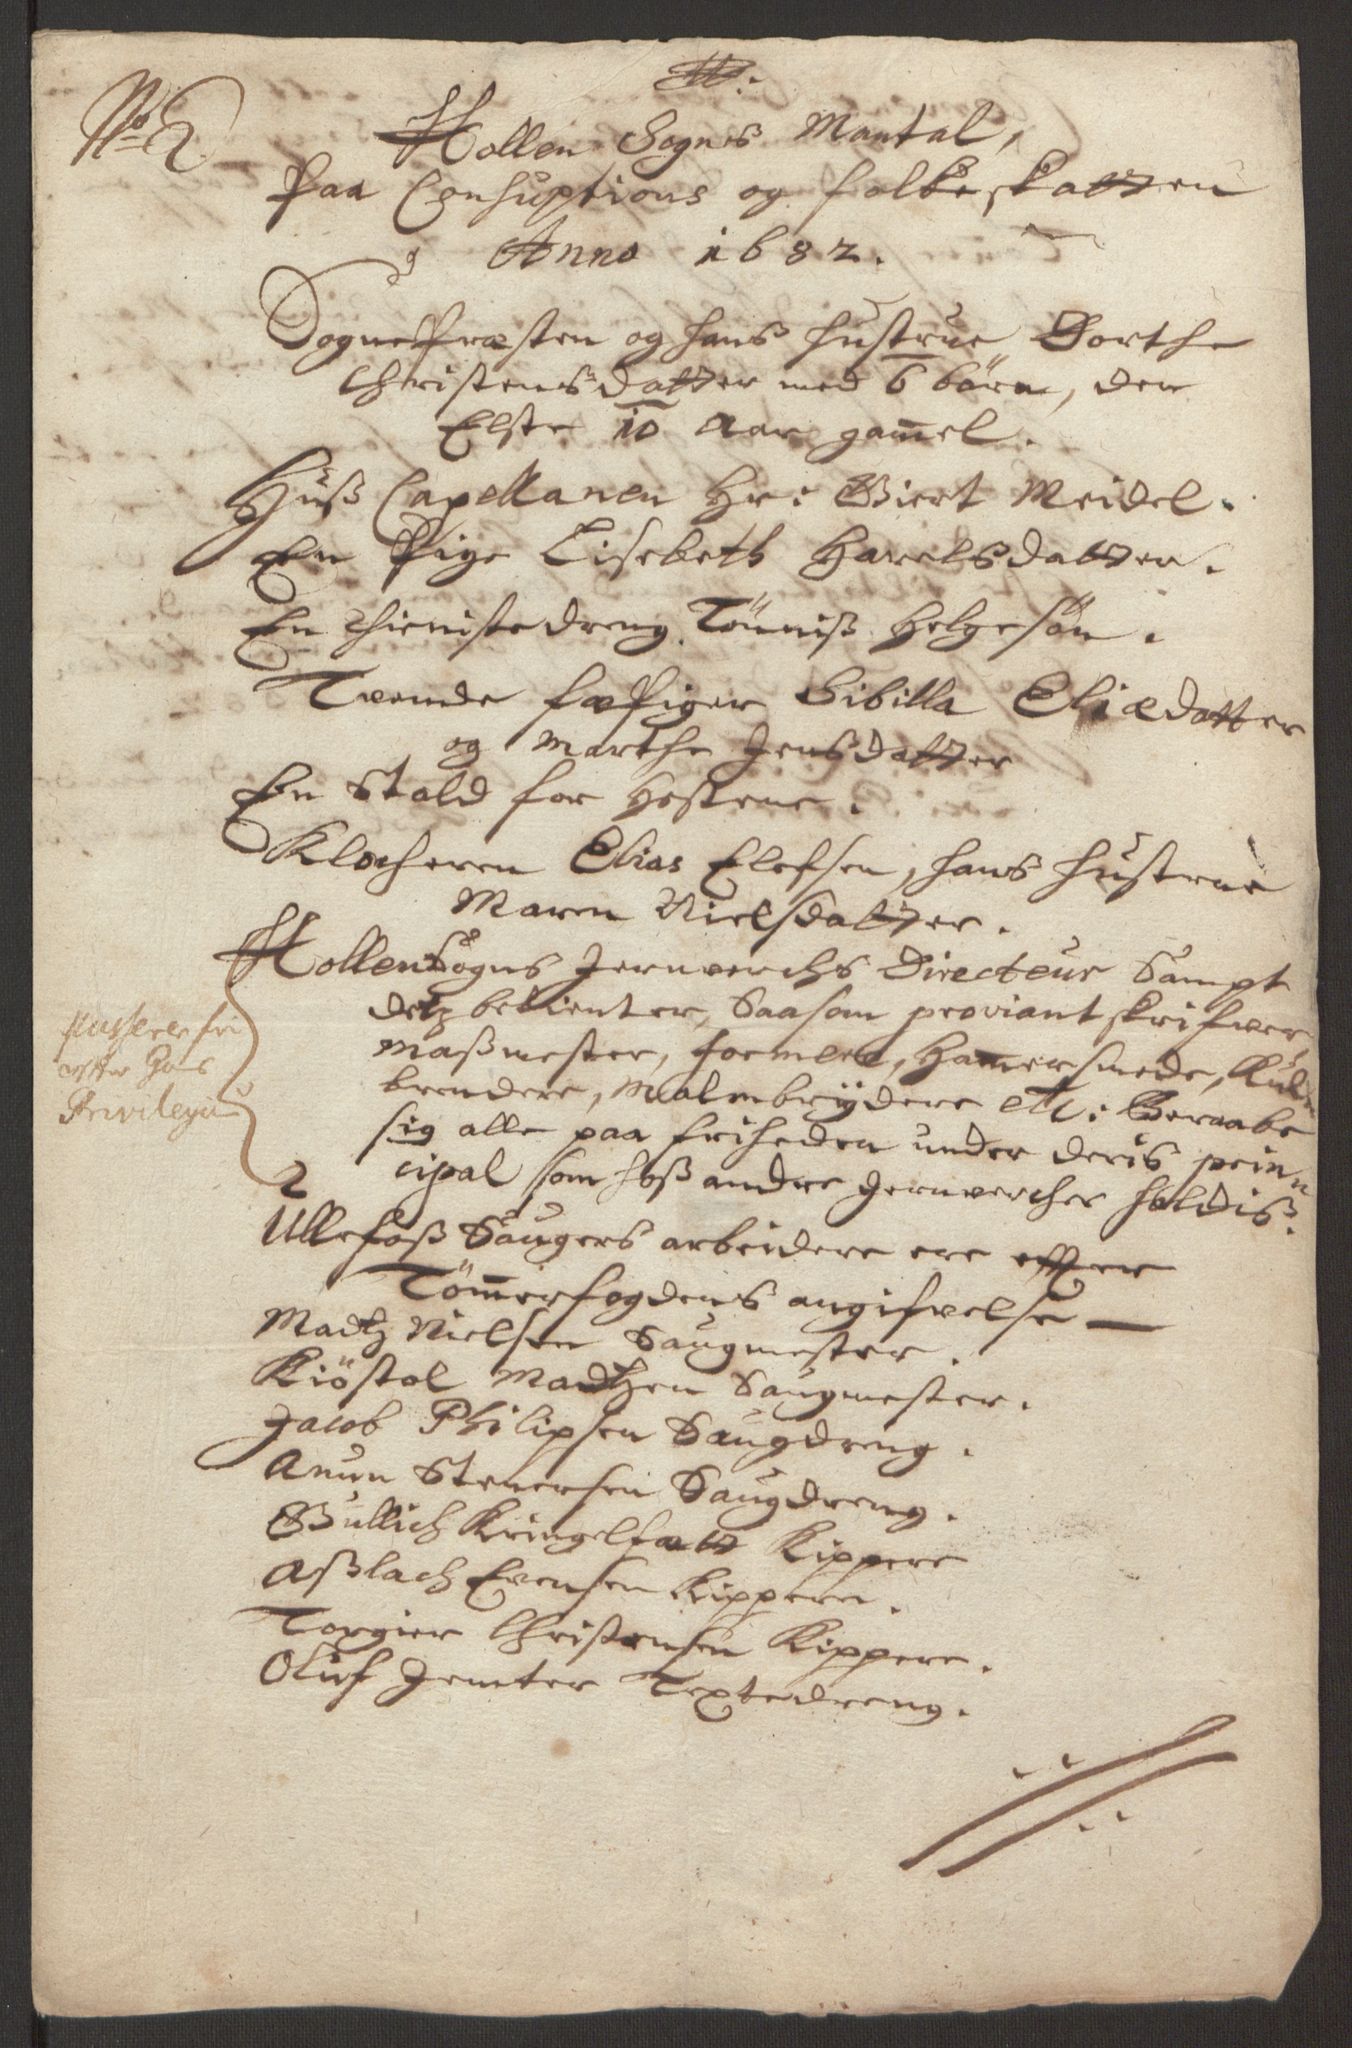 No 2
Hollen Sogns Mantal,
Paa Consuptions og folkeskatten
Anno 1682.
SognePræsten og hans hustrue Dorthe
Christensdatter med 6 börn, den
Elste 10 Aar gam̄el.
Huß Capellanen Hr: Giert Meidel.
En Pige Lisebeth Harelsdatter.
En thienistedreng Tönniß Helgesön.
Tvende fæPiger Sibilla Eliædatter
og Marthe Jensdatter
En Stald for Hestene.
Klocheren Elias Elefsen, hans hustrue
Maren Nielsdatter.
Hollen Sogns Jernverchs Directeur Sampt
detz betienter, Saasom proviantskrifver
Maßmester, formere, Ham̄ersmede, Kul
brendere, Malmbrydere etc: Beraabe
sig alle paa friheden under deris prin
cipal som hoß andre Jernvercher holdiß.
Passerer fri
effter
Privilegiū
Ullefoß Saugers arbeidere ere effter
Töm̄erfogdens angifvelse
Madtz Nielsen Saugmester.
Kiöstol Madtzen Saugmester.
Jacob Philipsen Saugdreng.
Anun Stenersen Saugdreng.
Gullich Kringelfatt Kippere
Aßlach Evensen Kippere.
Torgier Christensen Kippere.
Oluf Jemter Teptedreng.